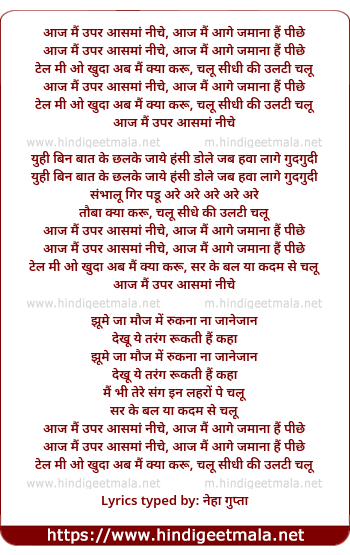 आज मैं उपर आसमां नीचे, आज मैं आगे जमाना हैं पीछे
आज मैं उपर आसमां नीचे, आज मैं आगे जमाना हैं पीछे
टेल मी ओ खुदा अब मैं क्या करू, चलू सीधी की उलटी चलू
आज मैं उपर आसमां नीचे, आज मैं आगे जमाना हैं पीछे
टेल मी ओ खुदा अब मैं क्या करू, चलू सीधी की उलटी चलू
आज मैं उपर आसमां नीचे
www.hindigeetmala.net m.hindigeetmala.net
युही बिन बात के छलके जाये हंसी डोले जब हवा लागे गुदगुदी
युही बिन बात के छलके जाये हंसी डोले जब हवा लागे गुदगुदी
संभालू गिर पडू अरे अरे अरे अरे अरे
तौबा क्या करू, चलू सीधे की उलटी चलू
आज मैं उपर आसमां नीचे, आज मैं आगे जमाना हैं पीछे
आज मैं उपर आसमां नीचे, आज मैं आगे जमाना हैं पीछे
टेल मी ओ खुदा अब मैं क्या करू, सर के बल या कदम से चलू
आज मैं उपर आसमां नीचे
www.hindigeetmala.net m.hindigeetmala.net
झूमे जा मौज में रुकना ना जानेजान
देखू ये तरंग रूकती हैं कहा
झूमे जा मौज में रुकना ना जानेजान
देखू ये तरंग रूकती हैं कहा
मैं भी तेरे संग इन लहरों पे चलू
सर के बल या कदम से चलू
आज मैं उपर आसमां नीचे, आज मैं आगे जमाना हैं पीछे
आज मैं उपर आसमां नीचे, आज मैं आगे जमाना हैं पीछे
टेल मी ओ खुदा अब मैं क्या करू, चलू सीधी की उलटी चलू
www.hindigeetmala.net m.hindigeetmala.net
Lyrics typed by: नेहा गुप्ता
https://www.hindigeetmala.net